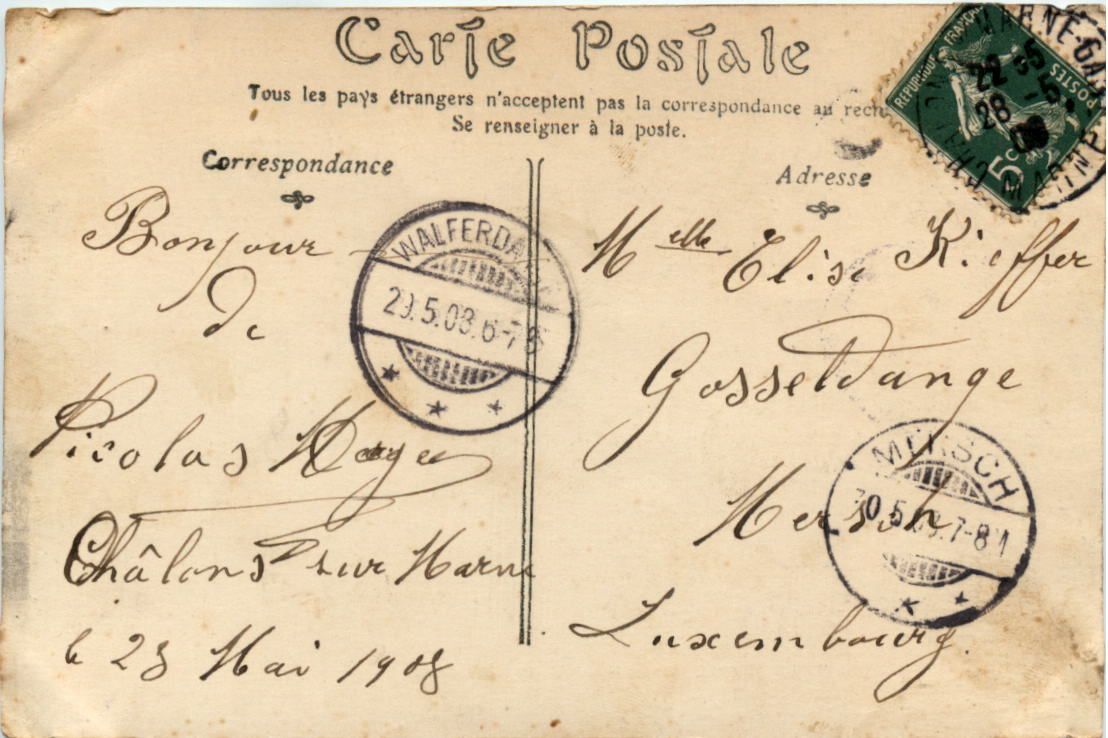 Carte Postale
Tous les pays étrangers n'acceptent pas la correspondance au
Se renseigner à la poste.
Correspondance
Bonjour
de
Châlons sur Marne
le 28 Mai 1908
Adresse
Melle Elise Kieffer
Gosseldange
Mersch
Luxembourg.
REPUBLIQUE FRANÇAISE
POSTES
5c
22
28
MARNE
WALFERDA
29.5.08.6-7
MERSCH
30.5.08.7-8